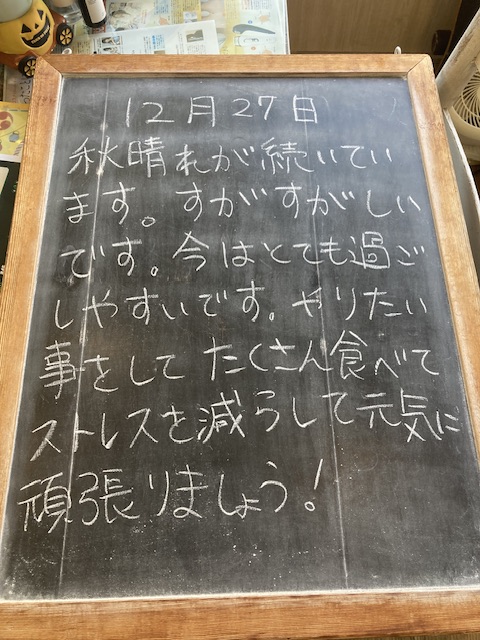 12月27日
秋晴れが続いてい
ます。すがすがしい
です。今はとても過ご
しやすいです。やりたい
事をして たくさん食べて
ストレスを減らして元気に
頑張りましょう!